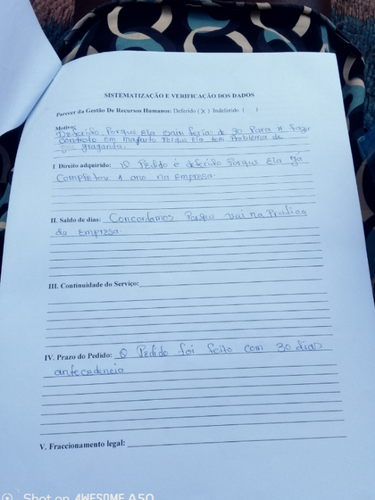 SISTEMATIZAÇÃO E VERIFICAÇÃO DOS DADOS
Parecer da Gestão De Recursos Humanos: Deferido ( X ) Indeferido ( )
Motivo:
Porque Ela ferias de 30 Para
Contrato em Maputo Porque Ela tem Problema de
I. Direito adquirido: O Pedido é deferido Porque Ela Já
Completou 1 ano na Empresa.
II. Saldo de dias: Concordamos Porque vai na Pratica
da Empresa.
III. Continuidade do Serviço:
IV. Prazo do Pedido: O Pedido foi feito com 30 dias
antecedencia
V. Fraccionamento legal:
Shot on AWESOME A50